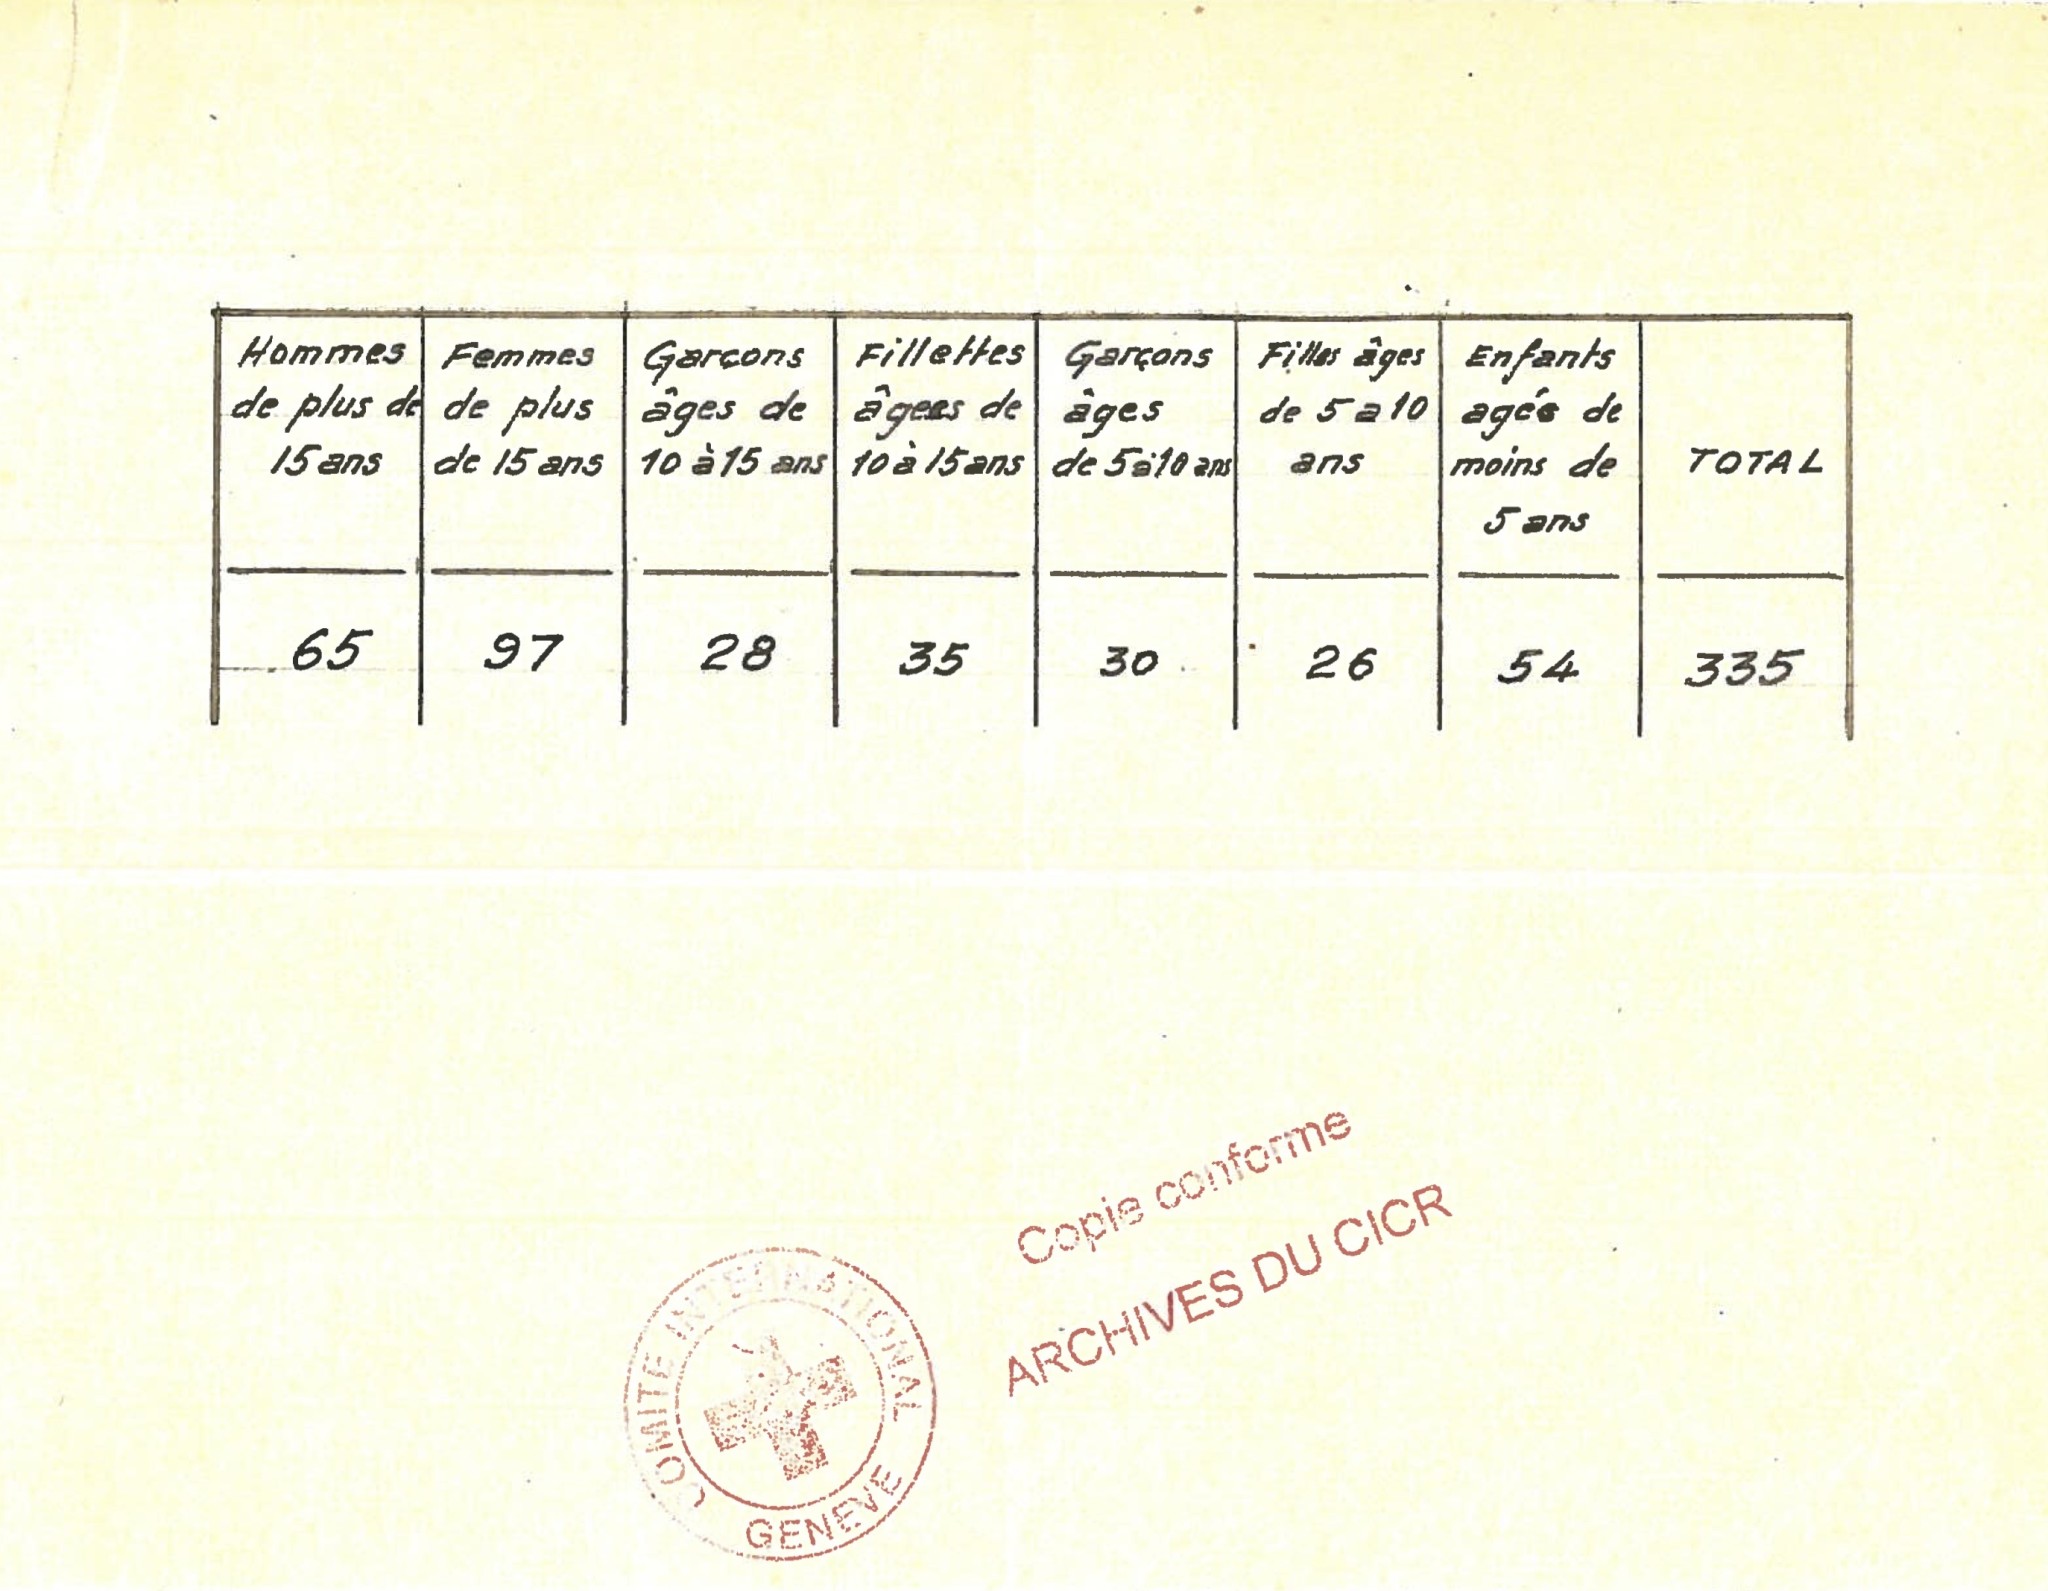 Hommes
de plus de
15 ans
65
Femmes
de plus
de 15 ans
97
Garçons
âges de
10 à 15 ans
28
Fillettes
âgees de
10 à 15 ans
35
Garçons
âges
de 5 à 10 ans
30
Filles âges
de 5 a 10
ans
26
Enfants
agés de
moins de
5 ans
54
TOTAL
335
Copie conforme
ARCHIVES DU CICR
COMITE INTERNATIONAL
GENEVE